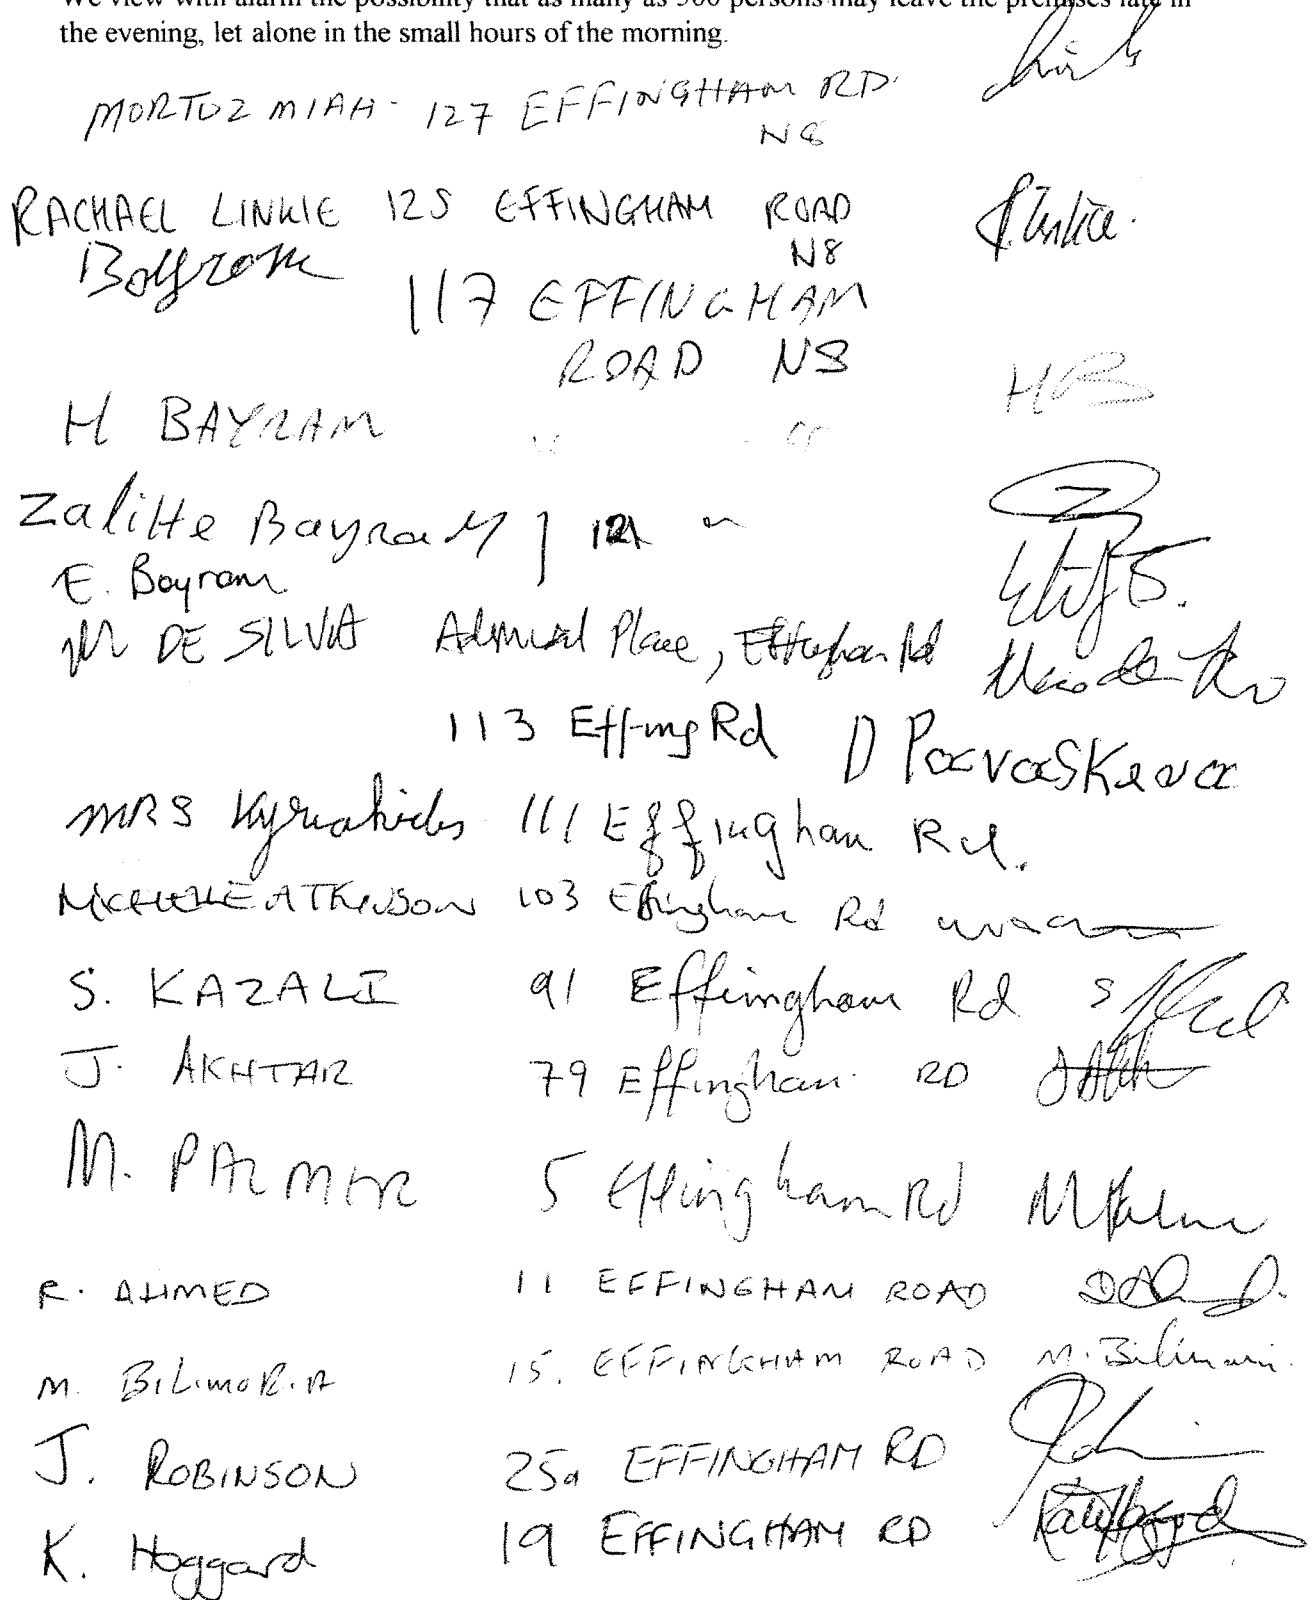 We view with alarm the possibility that as many as 500 persons may leave the premises late in
the evening, let alone in the small hours of the morning.
MORTOZ MIAH- 127 EFFINGHAM RD.
N8
RACHAEL LINKIE 125 EFFINGHAM ROAD
N8
117 EFFINGHAM
ROAD N8
H BAYRAM HB
Zalihe Bayram } 121 "
E. Bayram Elif B.
M DE SILVA Admiral Place, Effingham Rd
113 Effing Rd D Paravaskeva
MRS Kyriakides 111 Effingham Rd.
MICHELLE ATKINSON 103 Effingham Rd
S. KAZALI 91 Effingham Rd
J. AKHTAR 79 Effingham. RD
M. PALMER 5 Effingham Rd M Palmer
R. AHMED 11 EFFINGHAM ROAD
M. BILIMORIA 15. EFFINGHAM ROAD M. Bilimoria.
J. ROBINSON 25a EFFINGHAM RD
K. Hoggard 19 EFFINGHAM RD